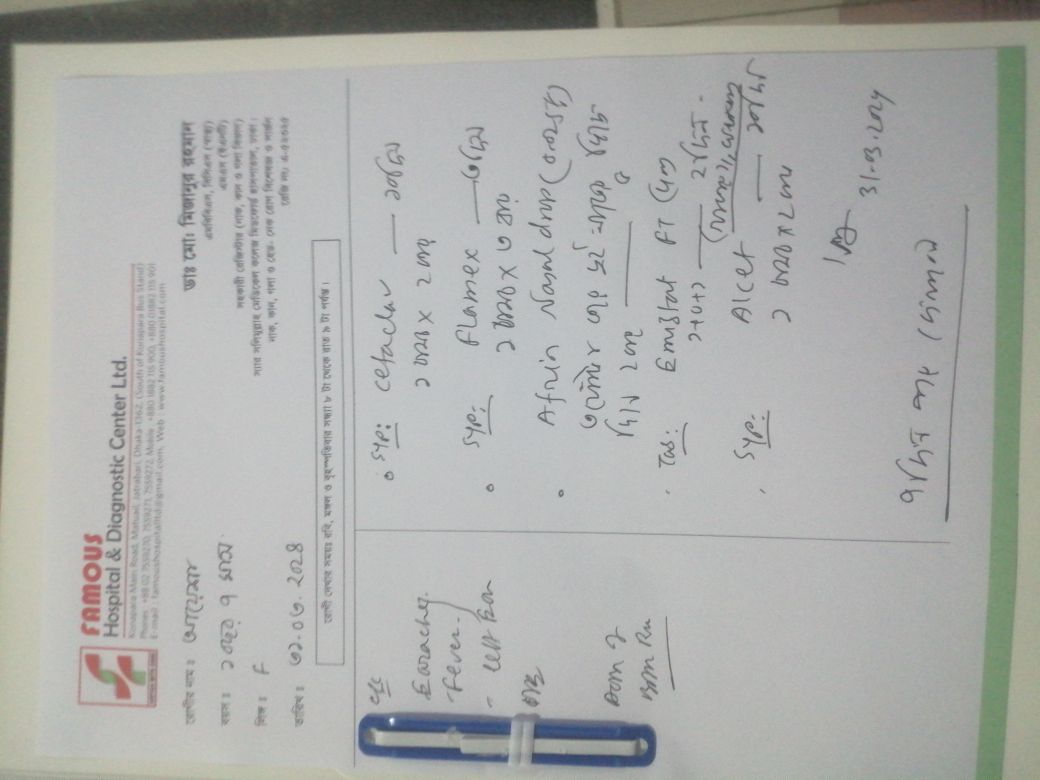 FAMOUS
Hospital & Diagnostic Center Ltd.
Konapara Main Road, Matuail, Jatrabari, Dhaka-1362, (South of Konapara Bus Stand)
Phones : +88 02 7559270, 7559271, 7559272, Mobile : +880 1882 115 900, +880 01882 115 901
E-mail : famoushospitalltd@gmail.com, Web : www.famoushospital.com
রোগীর নাম ঃ আয়েশা
বয়স ঃ ১ বছর ৭ মাস
লিঙ্গ ঃ F
তারিখ ঃ ৩১.০৩.২০২৪
ডাঃ মোঃ মিজানুর রহমান
এমবিবিএস, বিসিএস (স্বাস্থ্য)
এমএস (ইএনটি)
সহকারী রেজিস্ট্রার (নাক, কান ও গলা বিভাগ)
স্যার সলিমুল্লাহ মেডিকেল কলেজ মিটফোর্ড হাসপাতাল, ঢাকা।
নাক, কান, গলা ও হেড- নেক রোগ বিশেষজ্ঞ ও সার্জন
রোগী দেখার সময়ঃ রবি, মঙ্গল ও বৃহস্পতিবার সন্ধ্যা ৮ টা থেকে রাত ৯ টা পর্যন্ত।
C/C
Earache
Fever
- Left Ear
Syp: Cefaclav — ১০ দিন
১ চামচ x ২ বার
Syp: Flamex — ৩ দিন
১ চামচ x ৩ বার
Afrin Nasal drop
২ বার
Tab: Emistat FT
১+০+১ — ২ দিন
Syp: Alcet — ১০ দিন
১ চামচ x ২ বার
31.03.2024
৭ দিন পর